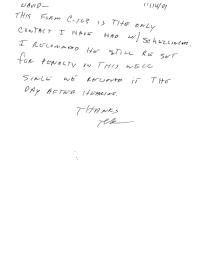 DAVID— 11/16/01
THIS FORM C-103 IS THE ONLY
CONTACT I HAVE HAD W/ SCHNEIDER,
I RECOMMEND HE STILL BE SET
FOR PENALTY ON THIS WELL
SINCE WE RECEIVED IT THE
DAY AFTER HEARING.
THANKS